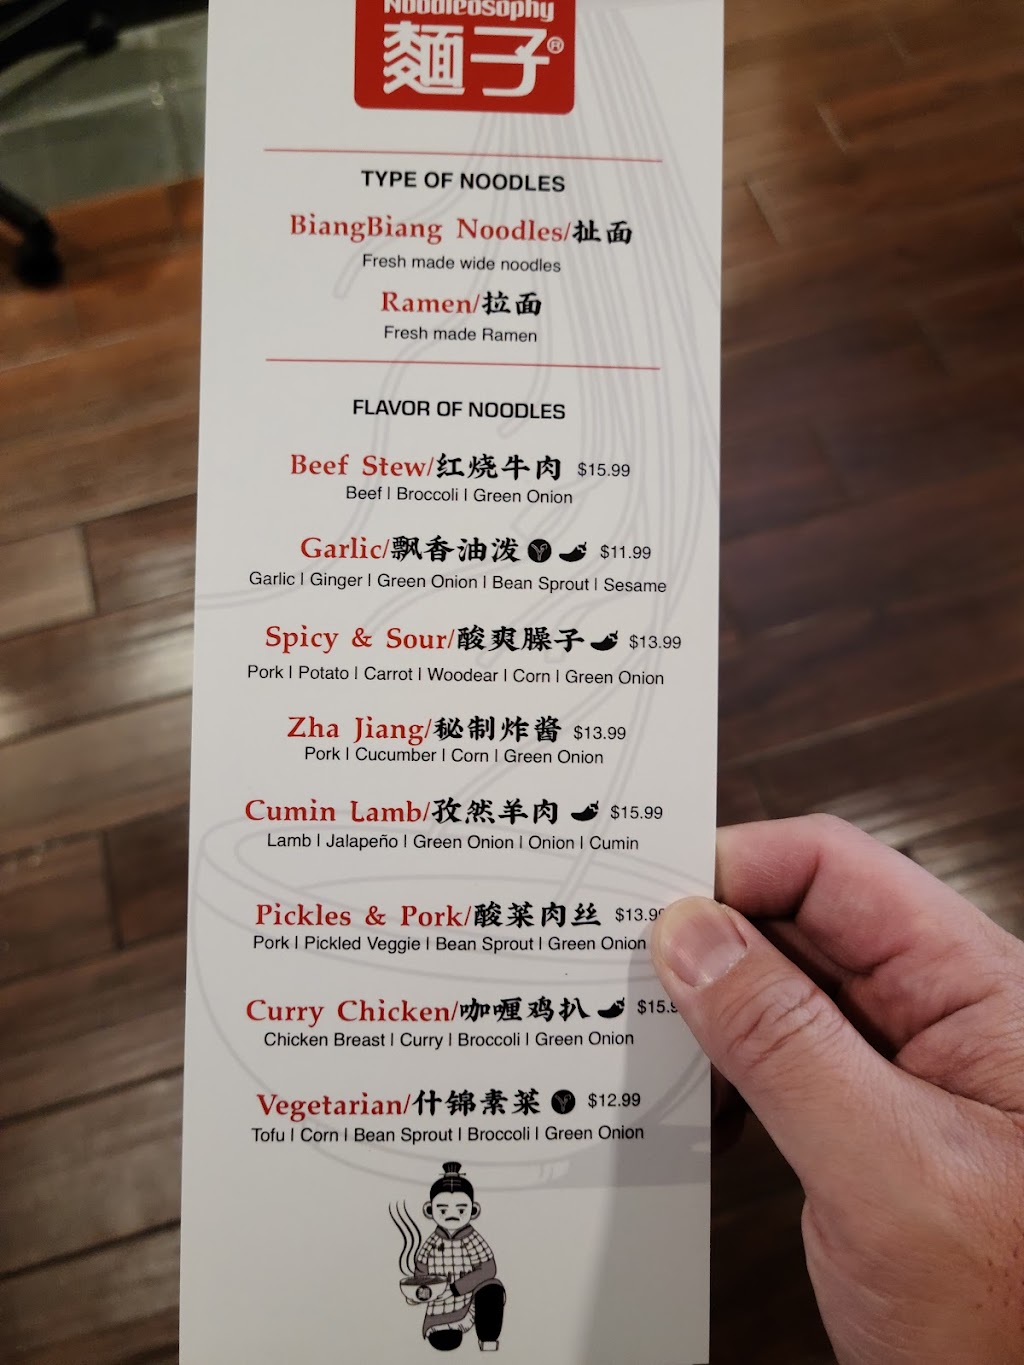 Noodleosophy
麵子®
TYPE OF NOODLES
BiangBiang Noodles/扯面
Fresh made wide noodles
Ramen/拉面
Fresh made Ramen
FLAVOR OF NOODLES
Beef Stew/红烧牛肉 $15.99
Beef | Broccoli | Green Onion
Garlic/飘香油泼 $11.99
Garlic | Ginger | Green Onion | Bean Sprout | Sesame
Spicy & Sour/酸爽臊子 $13.99
Pork | Potato | Carrot | Woodear | Corn | Green Onion
Zha Jiang/秘制炸酱 $13.99
Pork | Cucumber | Corn | Green Onion
Cumin Lamb/孜然羊肉 $15.99
Lamb | Jalapeño | Green Onion | Onion | Cumin
Pickles & Pork/酸菜肉丝 $13.99
Pork | Pickled Veggie | Bean Sprout | Green Onion
Curry Chicken/咖喱鸡扒 $15.9
Chicken Breast | Curry | Broccoli | Green Onion
Vegetarian/什锦素菜 $12.99
Tofu | Corn | Bean Sprout | Broccoli | Green Onion